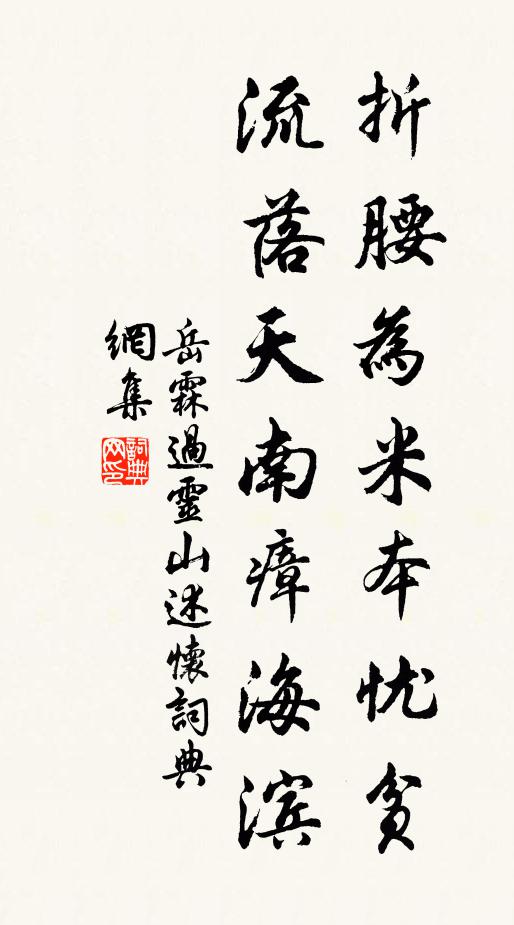 折腰為米本忧貧
流落天南瘴海滨
岳霖過靈山述懷詞典
網集
詞典網印